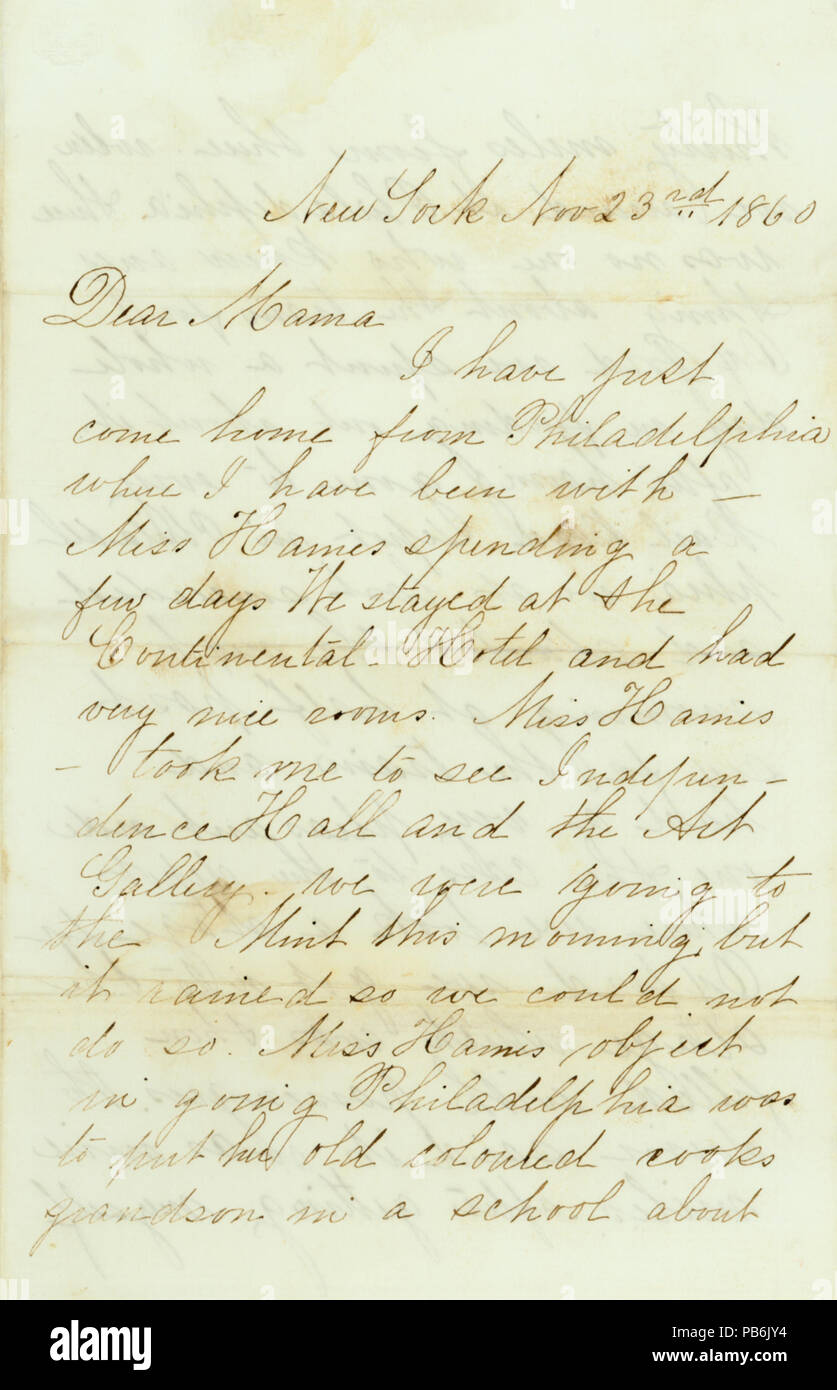 New York Nov 23rd 1860
Dear Mama
I have just
come home from Philadelphia
where I have been with —
Miss Haines spending a
few days We stayed at the
Continental - Hotel and had
very nice rooms. Miss Haines
- took me to see Indepen -
dence Hall and the Art
Gallery. we were going to
the Mint this morning, but
it rained so we could not
do so. Miss Haines object
in going Philadelphia was
to put her old coloured cooks
grandson in a school about
alamy
Image ID: PB6JY4
www.alamy.com